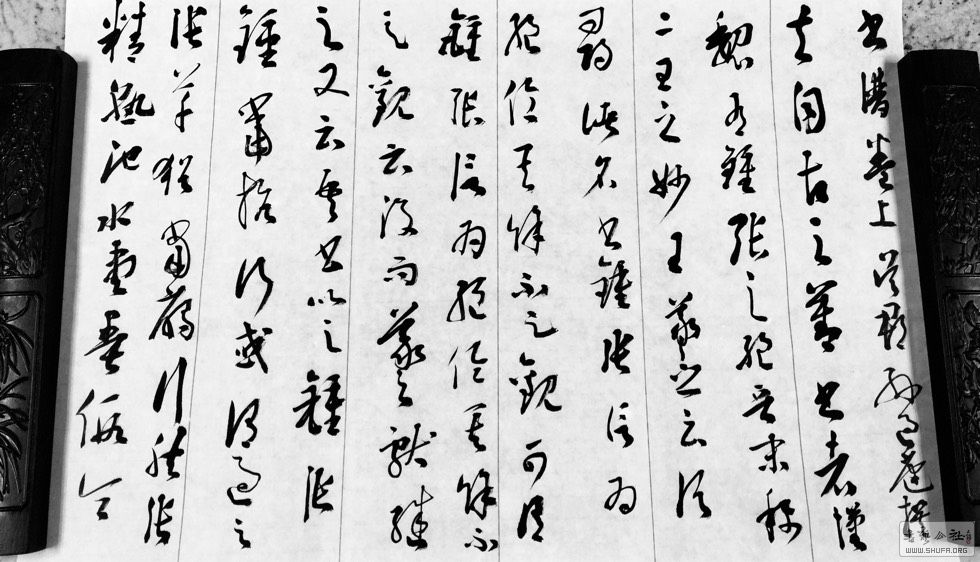 書譜卷上 吳郡 孫過庭撰
夫自古之善書者漢
魏有鍾張之絕晉末稱
二王之妙王羲之云頃
尋諸名書鍾張信為
絕倫其餘不足觀可謂
鍾張信為絕倫其餘不
足觀云沒而羲之獻繼
之又云吾書比之鍾張
鍾當抗行或謂過之
張草猶當雁行然張
精熟池水盡墨假令
WWW.SHUFA.ORG